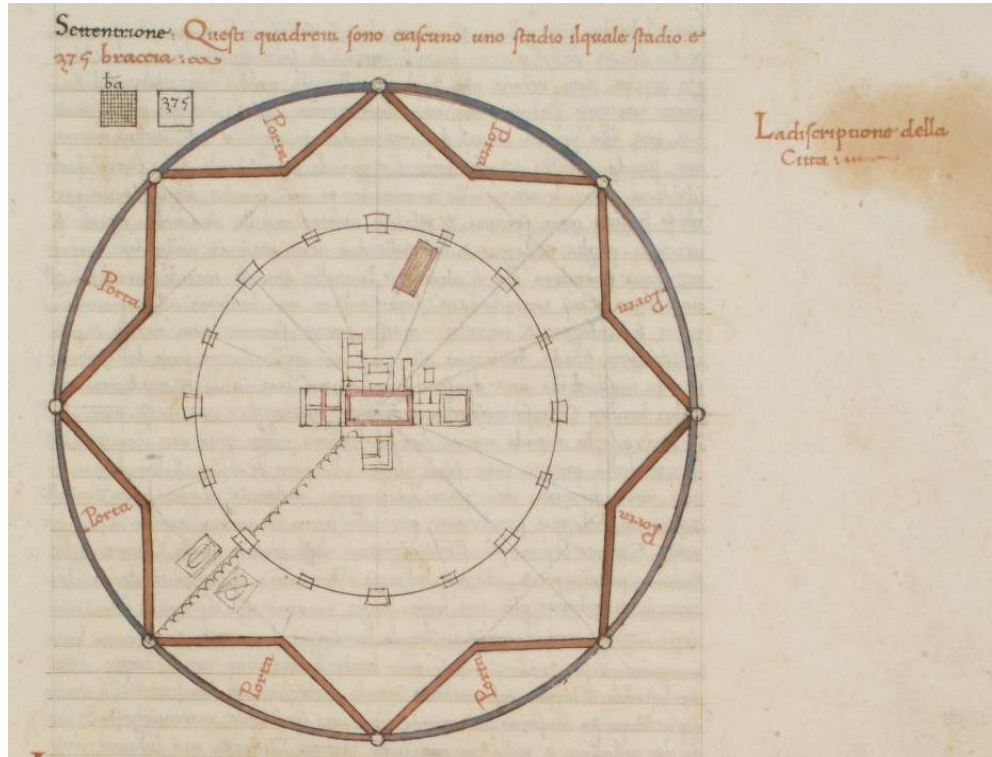 Settentrione: Questi quadretti sono ciascuno uno stadio ilquale stadio e
375 braccia :
ba
375
Ladiscriptione della
Citta :
Porta
Porta
Porta
Porta
Porta
Porta
Porta
Porta